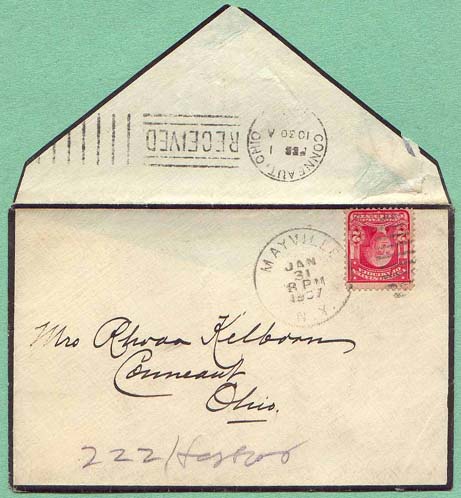 CONNEAUT, OHIO
FEB 1
10 30 A
RECEIVED
MAYVILLE
JAN
31
8 PM
1907
N.Y.
2 2
Mrs Rhoda Kelborn
Conneaut
Ohio.
222